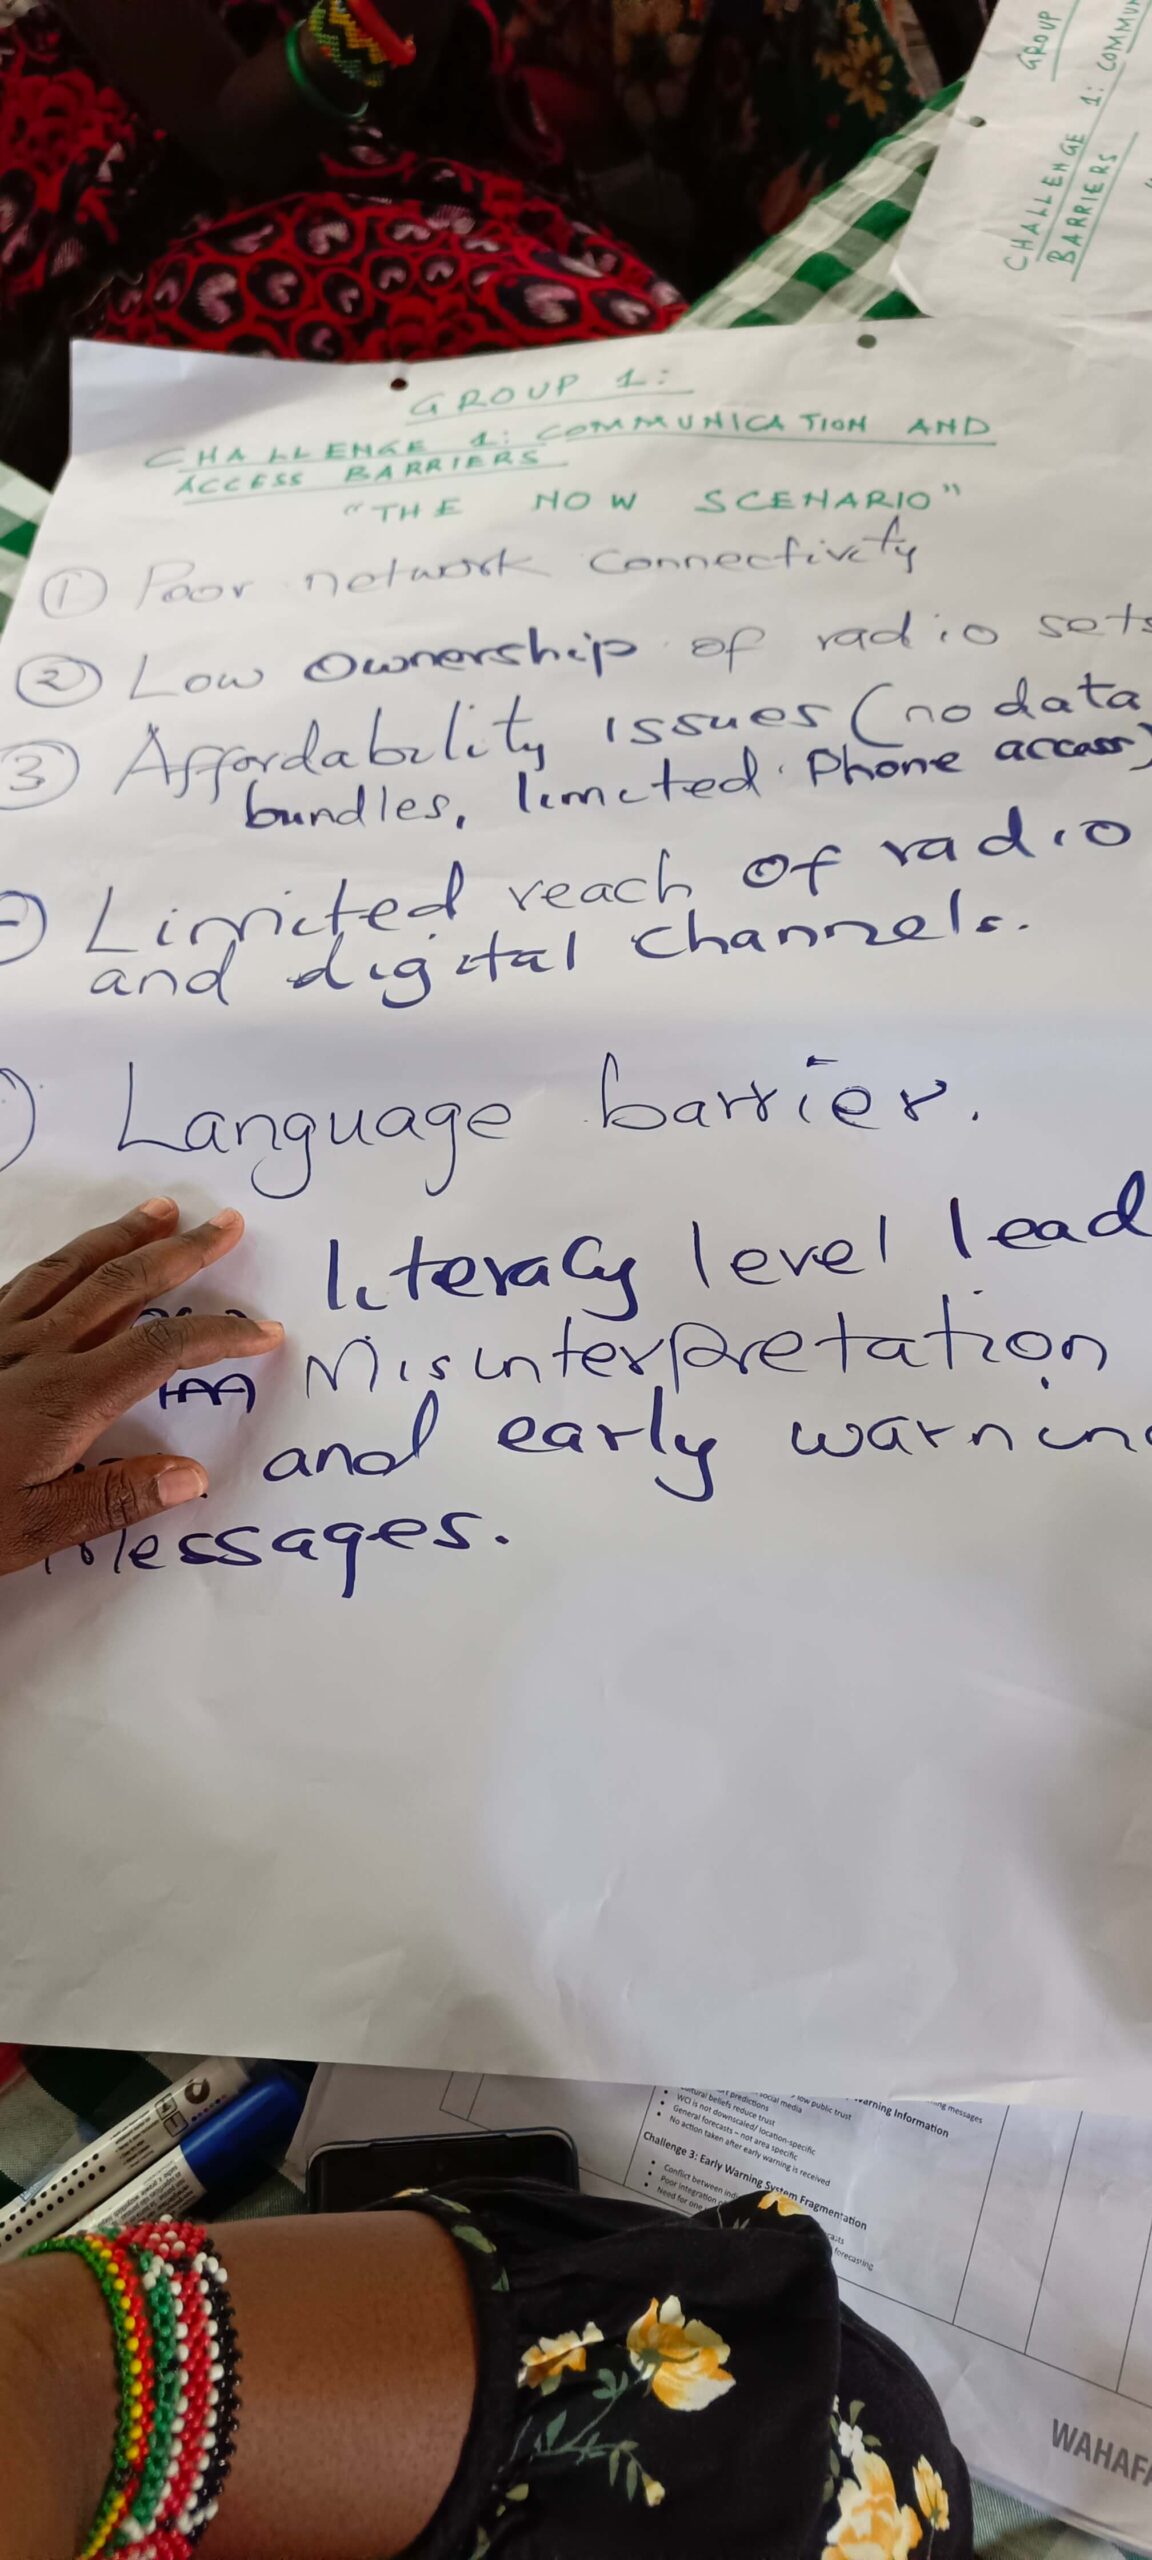 GROUP 1:
CHALLENGE 1: COMMUNICATION AND
ACCESS BARRIERS
"THE NOW SCENARIO"
① Poor network connectivity
② Low ownership of radio sets
③ Affordability issues (no data
bundles, limited phone access)
Limited reach of radio
and digital channels.
Language barrier.
literacy level lead
Misinterpretation
and early warning
Messages.
GROUP
CHALLENGE 1: COMMUN
BARRIERS
predictions
social media
low public trust
Cultural beliefs reduce trust
WCI is not downscaled/ location-specific
General forecasts – not area specific
No action taken after early warning is received
Challenge 3: Early Warning System Fragmentation
Conflict between
Poor integration
Need for one
forecasting
messages
Warning Information
WAHAFA